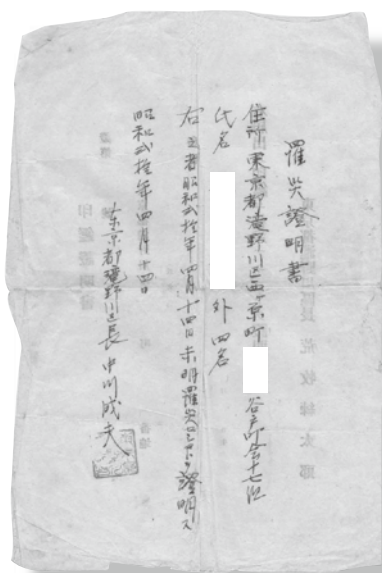 罹災證明書
住所 東京都滝野川区西ヶ原町 谷戸町会十七班
氏名 外四名
右ノ者昭和弐拾年四月十四日未明罹災セシコトヲ證明ス
昭和弐拾年四月十四日
東京都滝野川区長 中川成夫